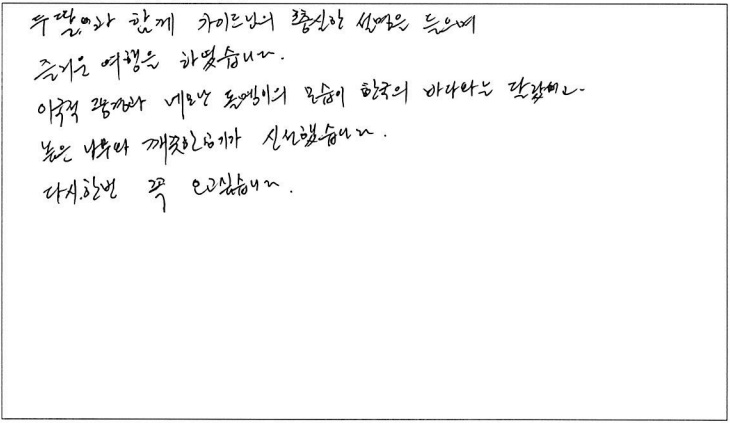 두딸이과 함께 가이드님의 충실한 설명을 들으며
즐거운 여행을 하였습니다.
이국적 광경과 네모난 돌멩이의 모습이 한국의 바다와는 달랐고
높은 나무와 깨끗한 공기가 신선했습니다.
다시한번 꼭 오고싶습니다.